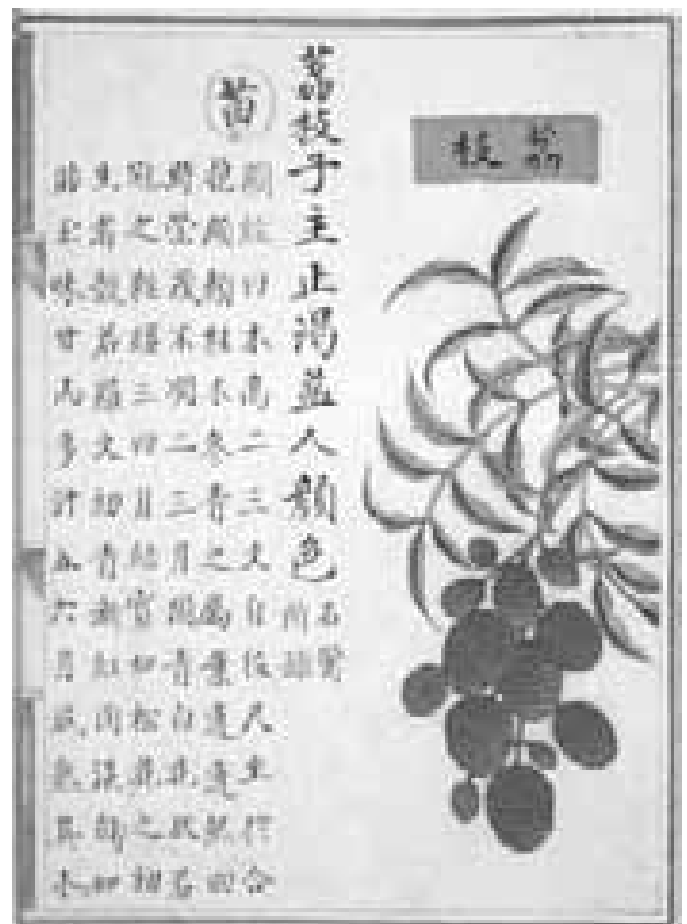 荔枝
荔枝子主止渴益人顏色
名醫
所錄
苗
圖經曰木高二三丈自徑尺至於合
抱頗類桂木冬青之屬葉蓬蓬然四
時榮茂不凋二三月開青白花狀若
冠之蕤緌三四月結實如松花之初
生者殼若羅文初青漸紅肉淡白如
脂玉味甘而多汁五六月成熟其木